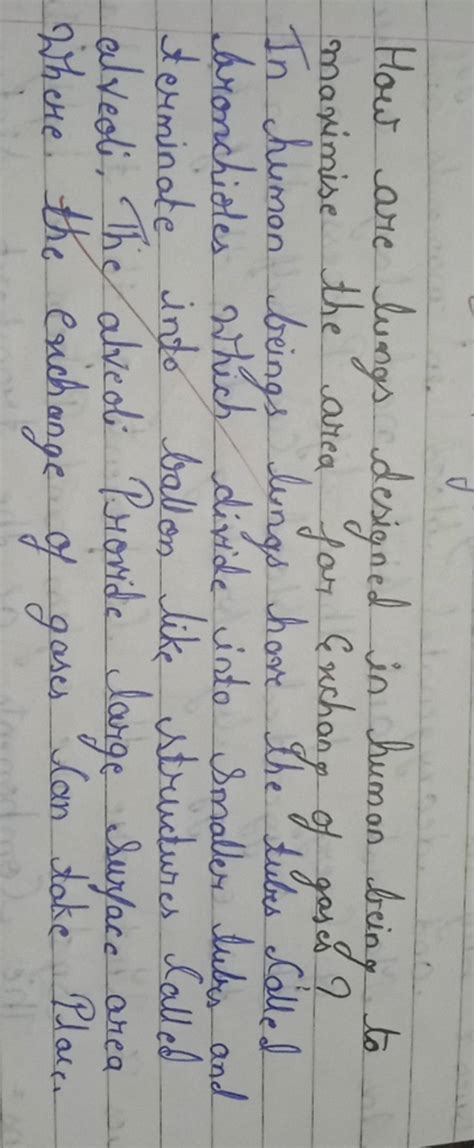 How are lungs designed in human being to
maximise the area for Exchang of gases?
In human beings lungs have the tubes Called
bronchioles which divide into smaller tubes and
terminate into ballon like structures Called
alveoli, The alveoli Provide large surface area
Where the exchange of gases Can take Place.